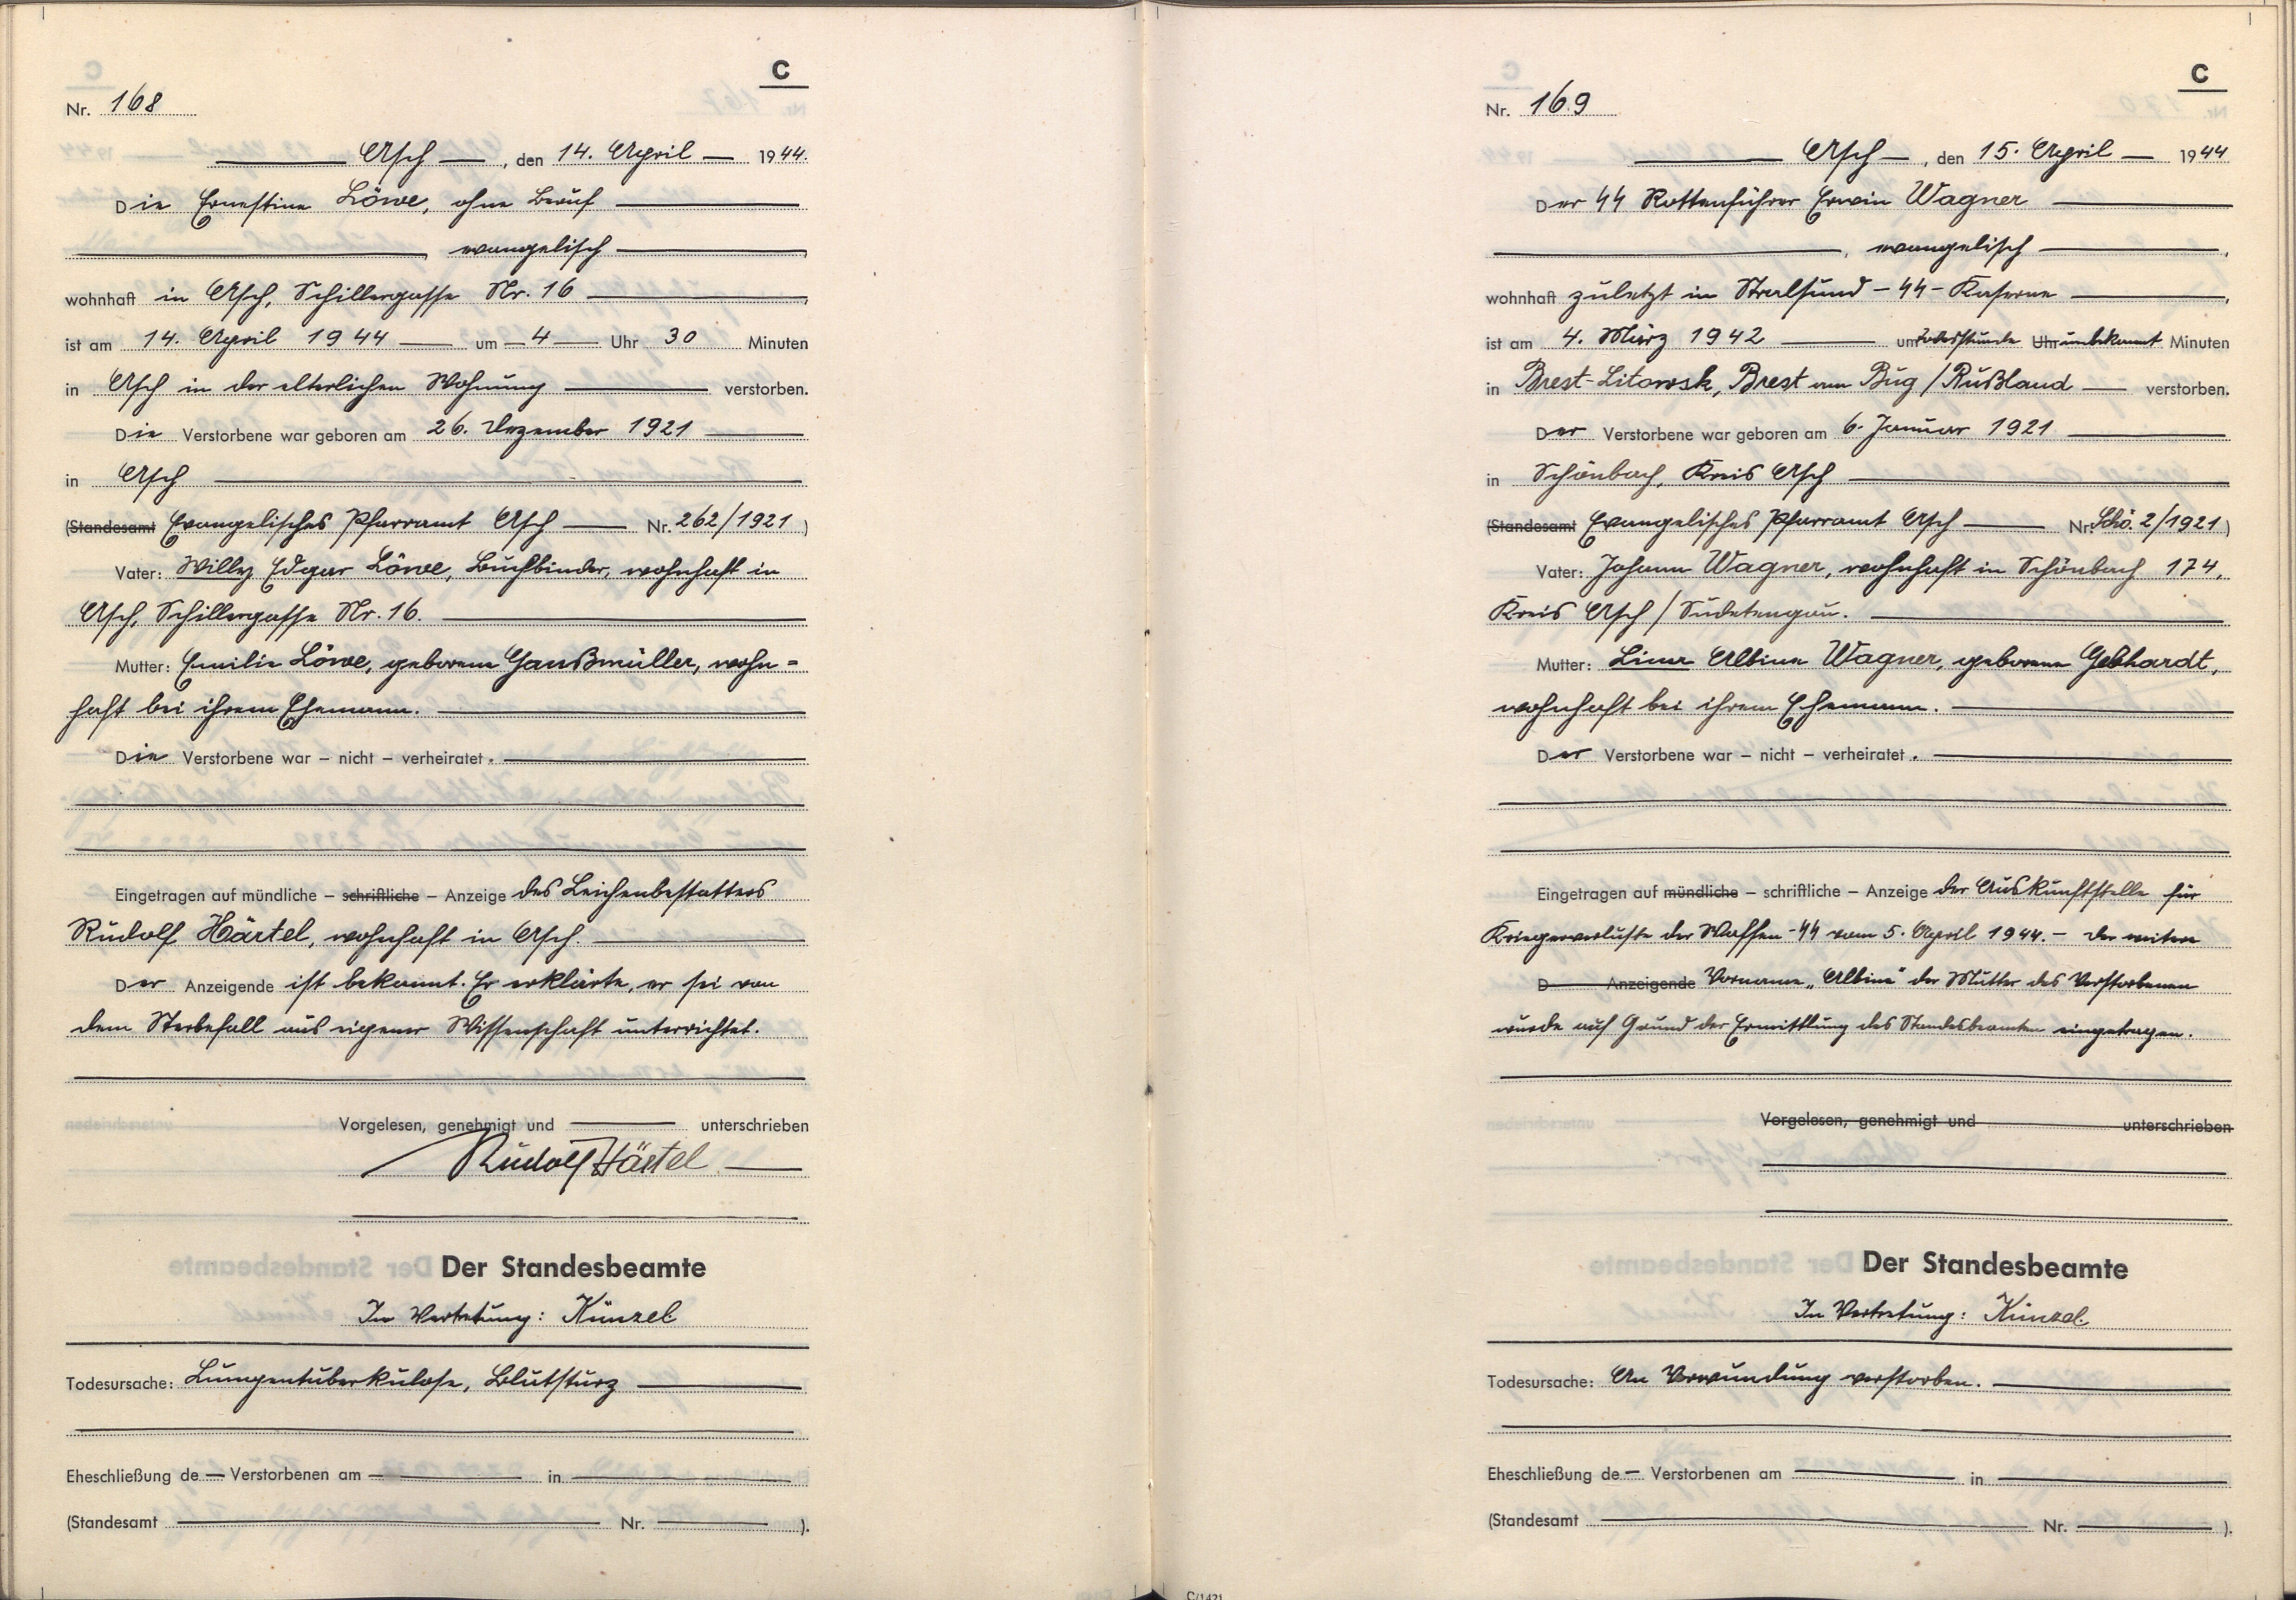 C
Nr. 168
Asch, den 14. April 1944.
Die Ernestine Löwe, ohne Beruf
, evangelisch,
wohnhaft in Asch, Schillergasse Nr. 16,
ist am 14. April 1944 um 4 Uhr 30 Minuten
in Asch in der elterlichen Wohnung verstorben.
Die Verstorbene war geboren am 26. Dezember 1921
in Asch
(Standesamt Evangelisches Pfarramt Asch Nr. 262/1921)
Vater: Willy Edgar Löwe, Buchbinder, wohnhaft in
Asch, Schillergasse Nr. 16.
Mutter: Emilie Löwe, geborene Ganßmüller, wohn=
haft bei ihrem Ehemann.
Die Verstorbene war – nicht – verheiratet.
Eingetragen auf mündliche – schriftliche – Anzeige des Leichenbestatters
Rudolf Härtel, wohnhaft in Asch.
Der Anzeigende ist bekannt. Er erklärte, er sei von
dem Sterbefall aus eigener Wissenschaft unterrichtet.
Vorgelesen, genehmigt und unterschrieben
Rudolf Härtel
Der Standesbeamte
In Vertretung: Künzel
Todesursache: Lungentuberkulose, Blutsturz
Eheschließung de Verstorbenen am in
(Standesamt Nr. ).
C
Nr. 169
Asch, den 15. April 1944
Der SS Rottenführer Erwin Wagner
, evangelisch,
wohnhaft zuletzt in Stralsund - SS - Kaserne,
ist am 4. März 1942 um Todesstunde Uhr unbekannt Minuten
in Brest-Litowsk, Brest am Bug / Rußland verstorben.
Der Verstorbene war geboren am 6. Januar 1921
in Schönbach, Kreis Asch
(Standesamt Evangelisches Pfarramt Asch Nr. Schö. 2/1921)
Vater: Johann Wagner, wohnhaft in Schönbach 174,
Kreis Asch / Sudetengau.
Mutter: Lina Albine Wagner, geborene Gebhardt,
wohnhaft bei ihrem Ehemann.
Der Verstorbene war – nicht – verheiratet.
Eingetragen auf mündliche – schriftliche – Anzeige der Auskunftstelle für
Kriegerverluste der Waffen-SS vom 5. April 1944. – Der weitere
D Anzeigende Vorname „Albine" der Mutter des Verstorbenen
wurde auf Grund der Ermittlung des Standesbeamten eingetragen.
Vorgelesen, genehmigt und unterschrieben
Der Standesbeamte
In Vertretung: Künzel.
Todesursache: An Verwundung verstorben.
Eheschließung de Verstorbenen am in
(Standesamt Nr. ).
C/1421